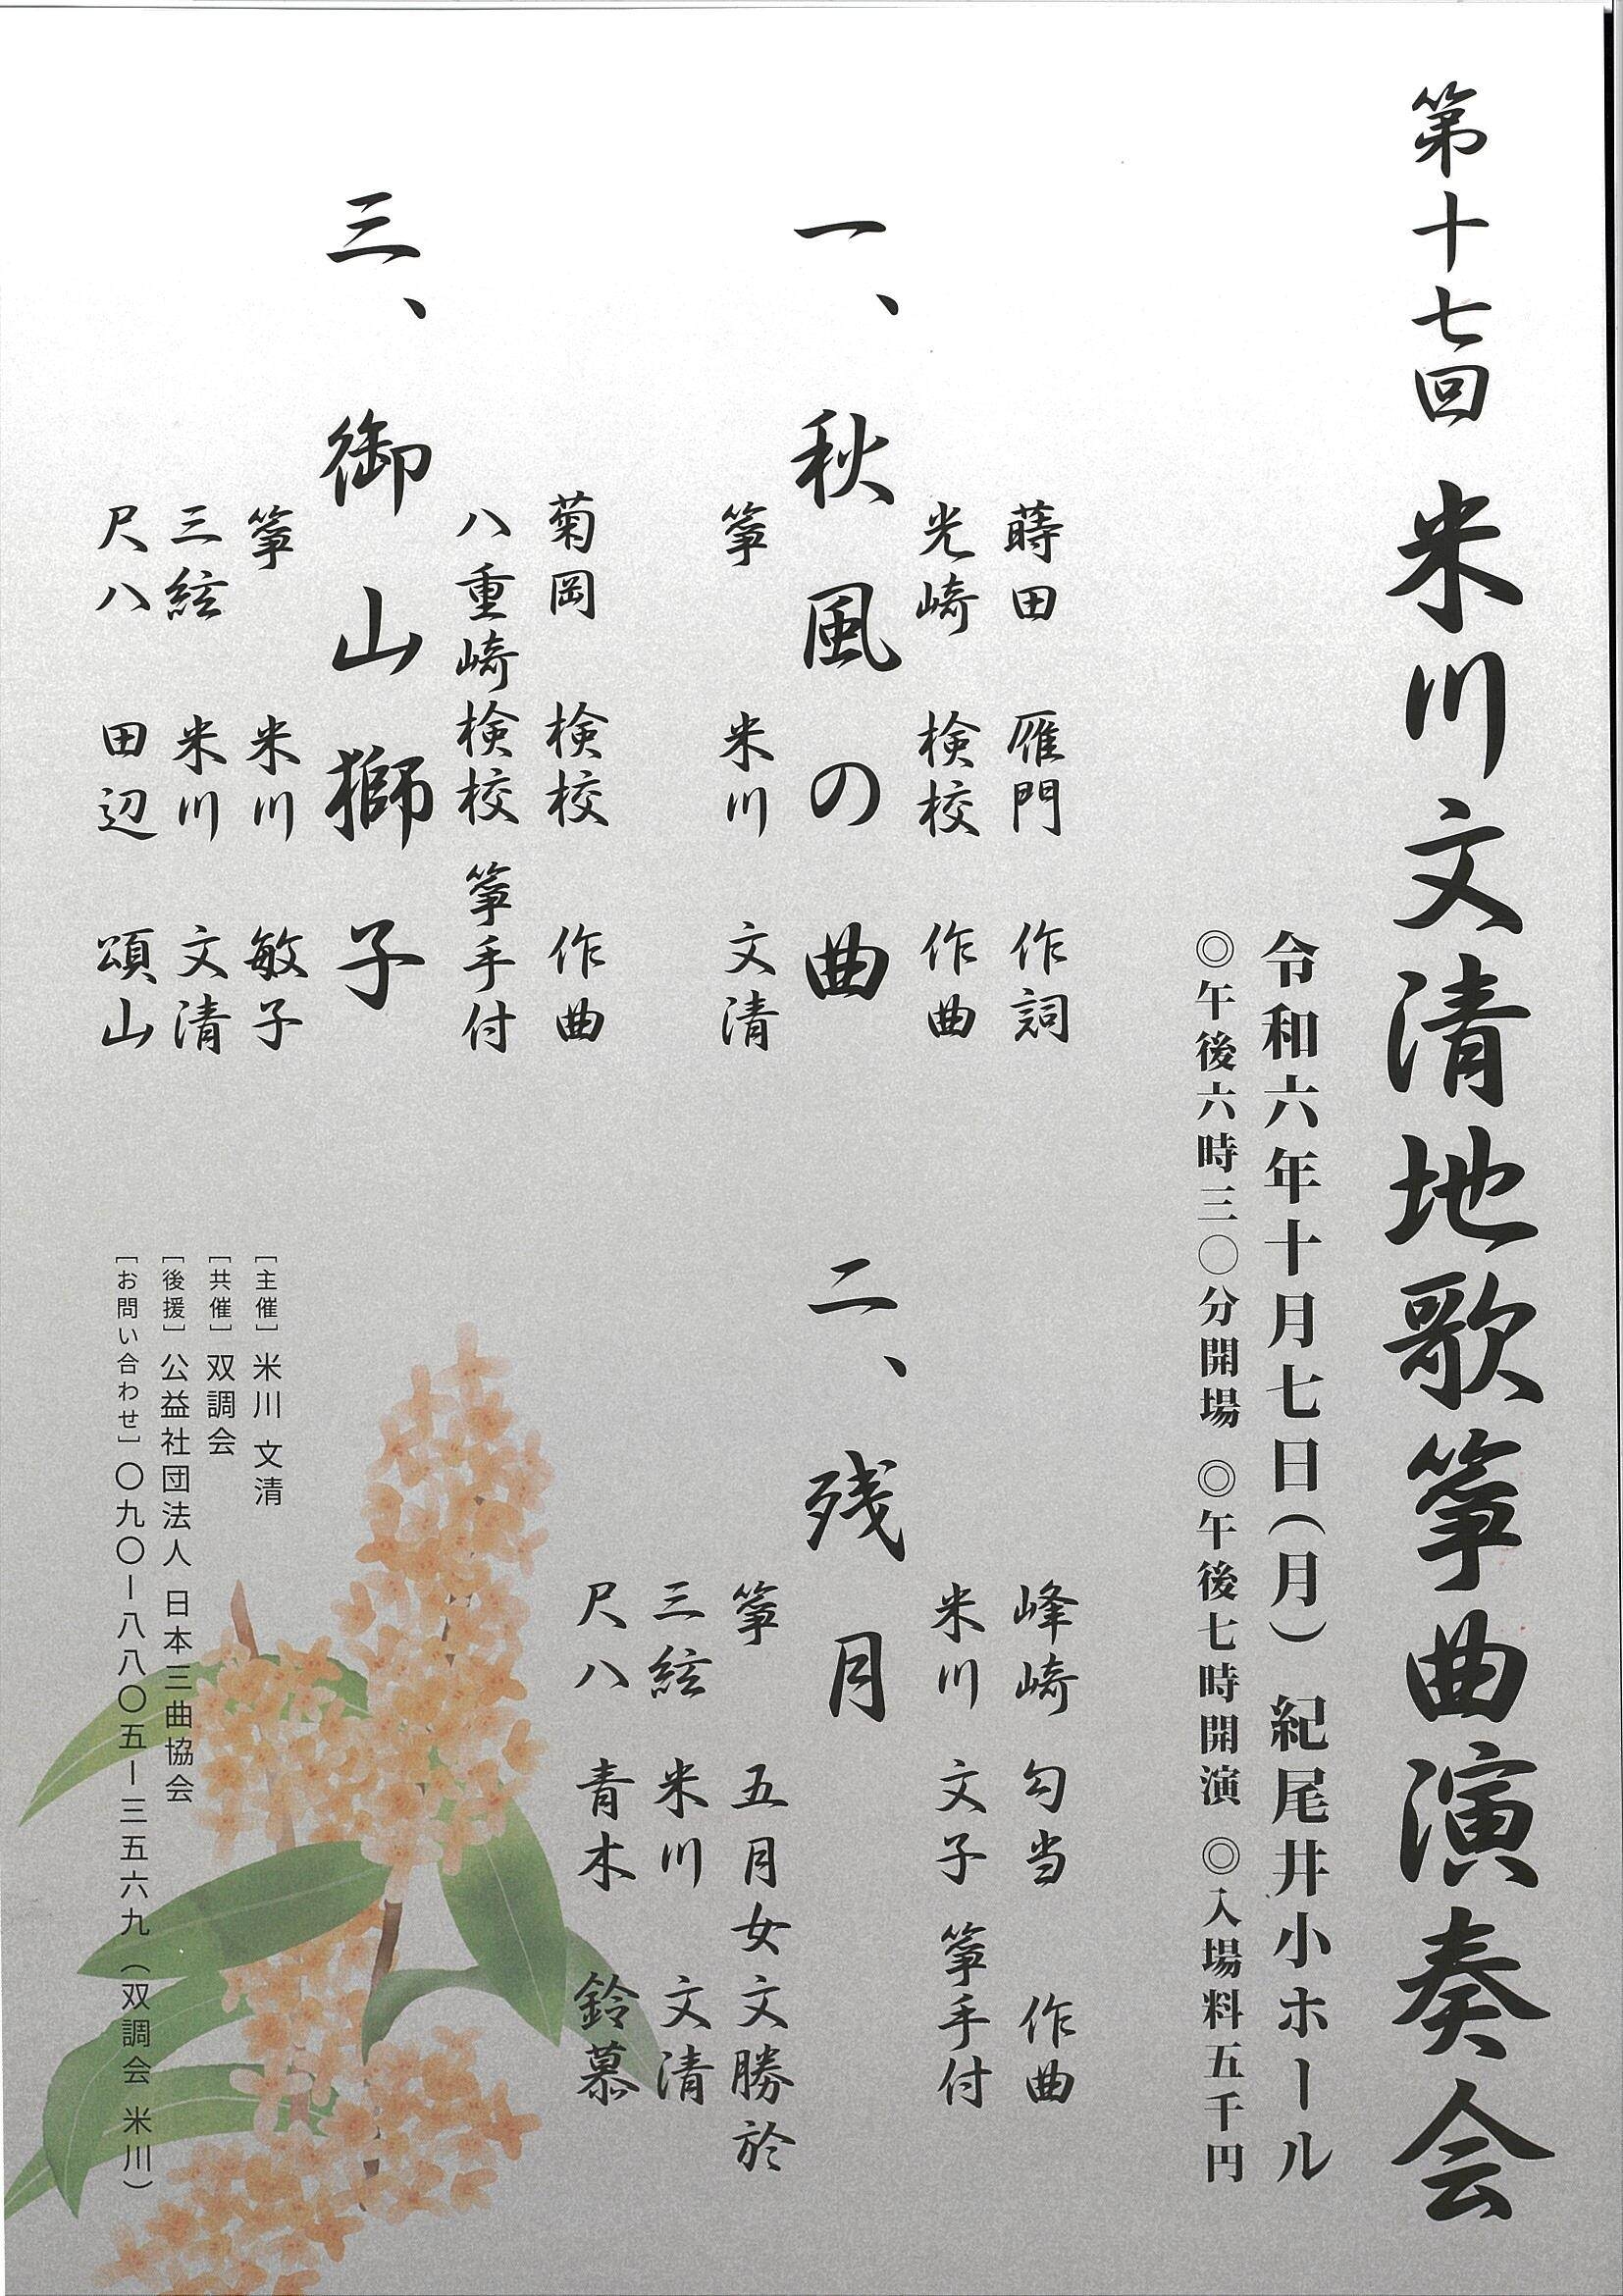 第十七回 米川文清地歌箏曲演奏会
令和六年十月七日(月) 紀尾井小ホール
◎午後六時三〇分開場 ◎午後七時開演 ◎入場料五千円
蒔田 雁門 作詞
光崎 検校 作曲
一、秋風の曲
箏 米川 文清
峰崎 勾当 作曲
米川 文子 箏手付
二、残月
箏 五月女文勝於
三絃 米川 文清
尺八 青木 鈴慕
菊岡 検校 作曲
八重崎検校 箏手付
三、御山獅子
箏 米川 敏子
三絃 米川 文清
尺八 田辺 頌山
[主催] 米川 文清
[共催] 双調会
[後援] 公益社団法人 日本三曲協会
[お問い合わせ] 〇九〇ー八八〇五ー三五六九(双調会 米川)